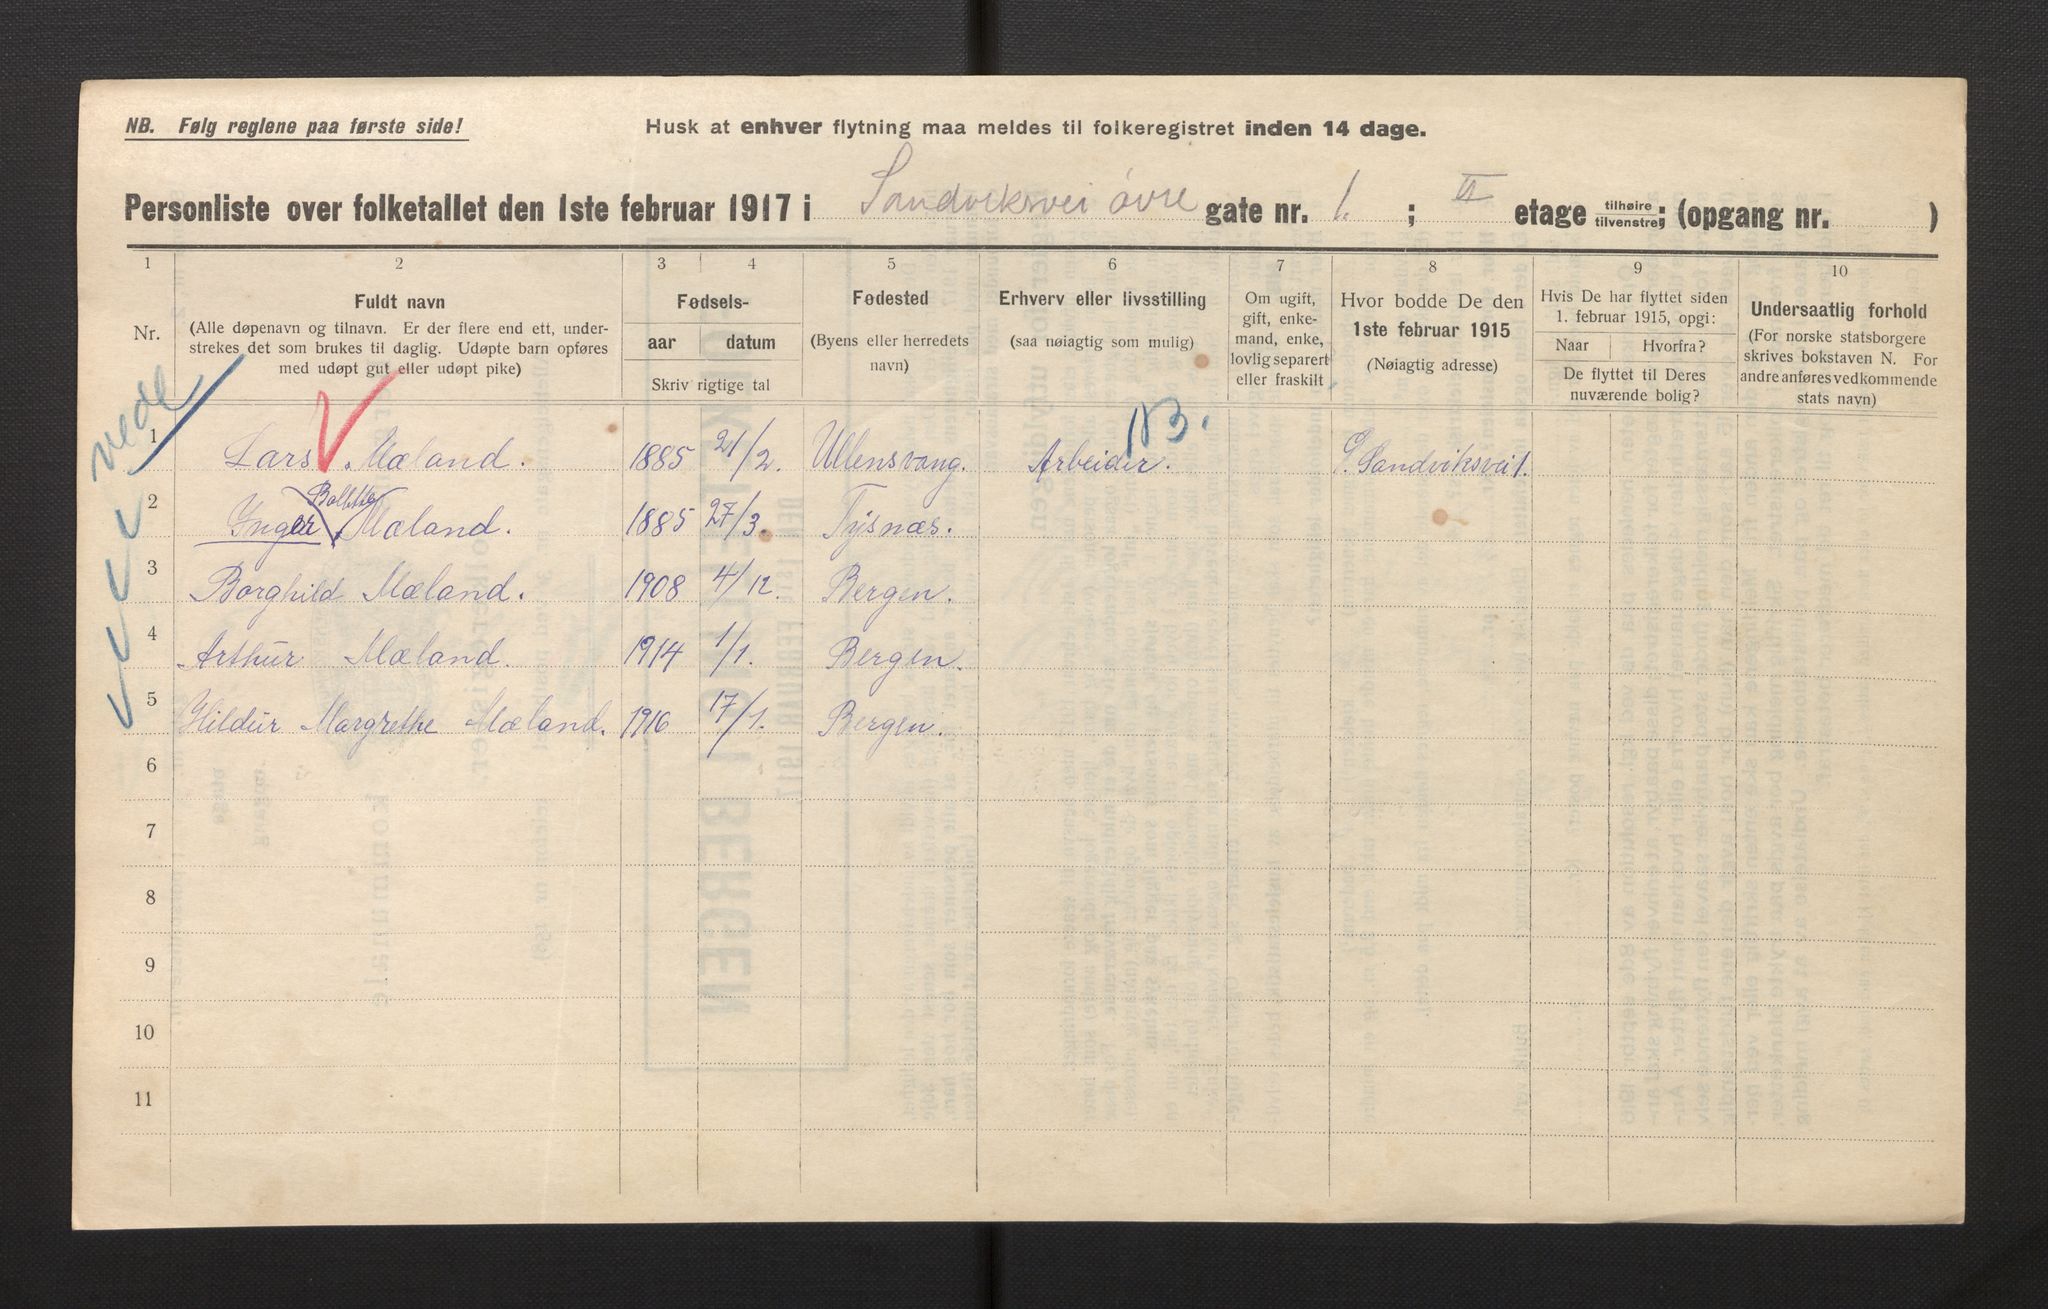 NB. Følg reglene paa første side!
Husk at enhver flytning maa meldes til folkeregistret inden 14 dage.
Personliste over folketallet den 1ste februar 1917 i Sandviksvei øvre gate nr. 1. ; II etage tilhøire tilvenstre; (opgang nr. )
1 2 3 4 5 6 7 8 9 10
Nr.
Fuldt navn
(Alle døpenavn og tilnavn. Er der flere end ett, under-
strekes det som brukes til daglig. Udøpte barn opføres
med udøpt gut eller udøpt pike)
Fødsels-
aar datum
Skriv rigtige tal
Fødested
(Byens eller herredets
navn)
Erhverv eller livsstilling
(saa nøiagtig som mulig)
Om ugift,
gift, enke-
mand, enke,
lovlig separert
eller fraskilt
Hvor bodde De den
1ste februar 1915
(Nøiagtig adresse)
Hvis De har flyttet siden
1. februar 1915, opgi:
Naar Hvorfra?
De flyttet til Deres
nuværende bolig?
Undersaatlig forhold
(For norske statsborgere
skrives bokstaven N. For
andre anføres vedkommende
stats navn)
vede
1 Lars Mæland. 1885 21/2 Ullensvang. Arbeider. Ø. Sandviksvei 1.
Bolette
2 Inger Mæland. 1885 27/3. Tysnæs.
3 Borghild Mæland. 1908 4/12. Bergen.
4 Arthur Mæland. 1914 1/1. Bergen.
5 Hildur Margrethe Mæland. 1916 17/1. Bergen.
6
7
8
9
10
11